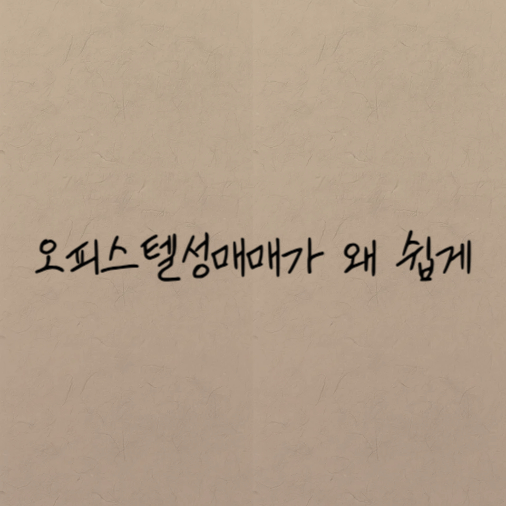 오피스텔성매매가 왜 쉽게